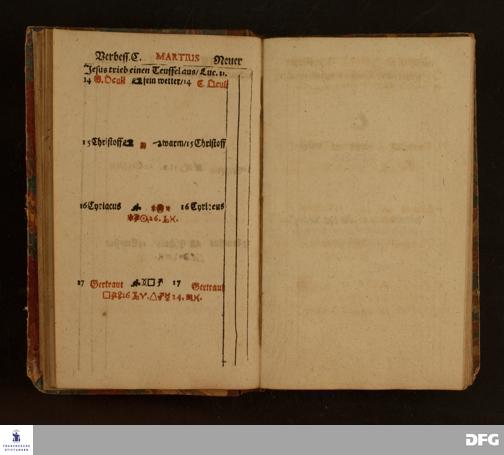 Verbess. C. MARTIUS Neuer
Jesus trieb einen Teuffel aus/ Luc. 11.
14 G. Oculi fein wetter/ 14 C. Oculi
15 Christoff warm/ 15 Christoff
16 Cyriacus 16 Cyriacus
17 Gertraut 17 Gertraut
FRANCKESCHE STIFTUNGEN
DFG